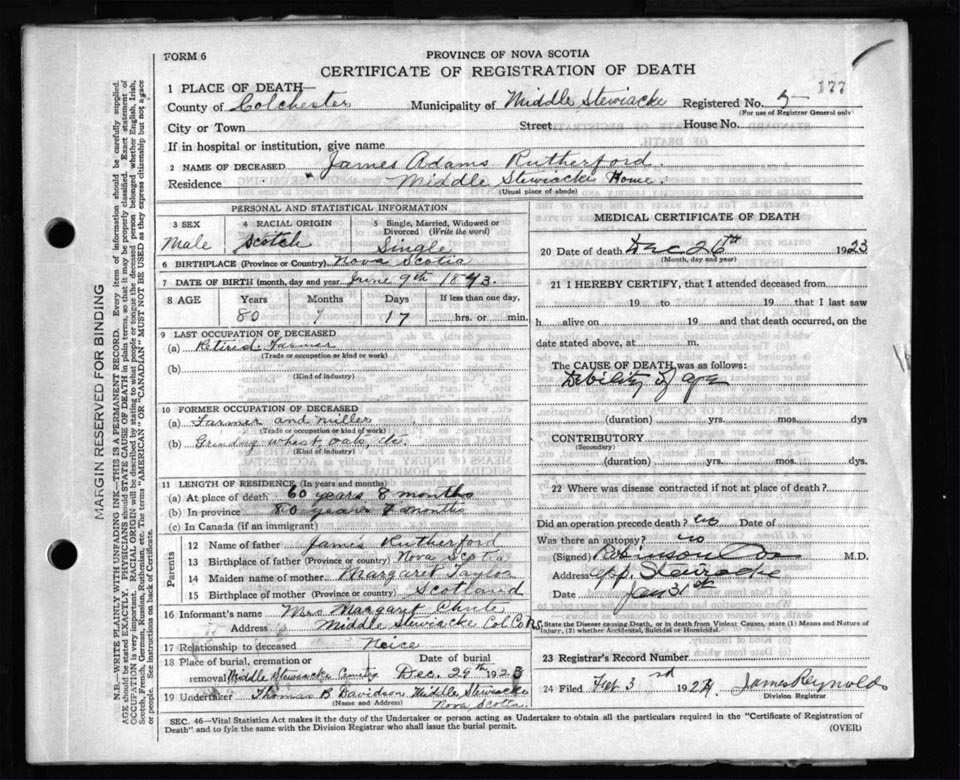 FORM 6
PROVINCE OF NOVA SCOTIA
CERTIFICATE OF REGISTRATION OF DEATH
177
1 PLACE OF DEATH—
County of Colchester Municipality of Middle Stewiacke Registered No. 5
(For use of Registrar General only)
City or Town Street House No.
If in hospital or institution, give name
2 NAME OF DECEASED James Adams Rutherford.
Residence Middle Stewiacke Home.
(Usual place of abode)
PERSONAL AND STATISTICAL INFORMATION
3 SEX 4 RACIAL ORIGIN 5 Single, Married, Widowed or Divorced (Write the word)
Male Scotch Single
6 BIRTHPLACE (Province or Country) Nova Scotia
7 DATE OF BIRTH (month, day and year) June 9th 1843.
8 AGE Years Months Days If less than one day,
80 17 hrs. or min.
9 LAST OCCUPATION OF DECEASED
(a) Retired Farmer
(Trade or occupation or kind or work)
(b)
(Kind of industry)
10 FORMER OCCUPATION OF DECEASED
(a) Farmer and miller
(Trade or occupation or kind of work)
(b) Grinding wheat, oats, etc.
(Kind of industry)
11 LENGTH OF RESIDENCE (In years and months)
(a) At place of death 60 years 8 months
(b) In province 80 years months
(c) In Canada (if an immigrant)
Parents
12 Name of father James Rutherford
13 Birthplace of father (Province or country) Nova Scotia
14 Maiden name of mother Margaret Taylor
15 Birthplace of mother (Province or country) Scotland
16 Informant's name Mrs Margaret Chute
Address Middle Stewiacke Col. Co. N.S.
17 Relationship to deceased Neice
18 Place of burial, cremation or removal Middle Stewiacke Date of burial Dec. 29th 1923
19 Undertaker Thomas B Davidson, Middle Stewiacke
(Name and Address) Nova Scotia.
MEDICAL CERTIFICATE OF DEATH
20 Date of death Dec 26th 1923
(Month, day and year)
21 I HEREBY CERTIFY, that I attended deceased from
19 to 19 that I last saw
h alive on 19 and that death occurred, on the
date stated above, at m.
The CAUSE OF DEATH was as follows:
Debility of age
(duration) yrs. mos. dys
CONTRIBUTORY
(Secondary)
(duration) yrs. mos. dys.
22 Where was disease contracted if not at place of death?
Did an operation precede death? no Date of
Was there an autopsy? no
(Signed) Robinson Cox M.D.
Address Stewiacke
Date Jan 31st
State the Disease causing Death, or in death from Violent Causes, state (1) Means and Nature of Injury, (2) whether Accidental, Suicidal or Homicidal.
23 Registrar's Record Number
24 Filed Feb 3rd 1924 James Reynolds
Division Registrar
SEC. 46—Vital Statistics Act makes it the duty of the Undertaker or person acting as Undertaker to obtain all the particulars required in the "Certificate of Registration of
Death" and to fyle the same with the Division Registrar who shall issue the burial permit. (OVER)
MARGIN RESERVED FOR BINDING
N.B.—WRITE PLAINLY WITH UNFADING INK—THIS IS A PERMANENT RECORD. Every item of information should be carefully supplied.
AGE should be stated EXACTLY. PHYSICIANS should STATE CAUSE OF DEATH in plain terms, so that it may be properly classified. Exact statement of
OCCUPATION is very important. RACIAL ORIGIN will be described by stating to what people or tongue the deceased person belonged whether English, Irish,
Scotch, French, German, Russian, Ruthenian, etc. The terms "AMERICAN" OR "CANADIAN" MUST NOT BE USED as they express citizenship but not a race
or people. See instructions on back of Certificate.